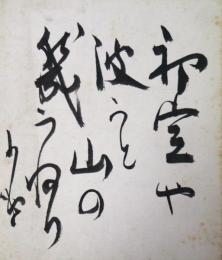 初空や
波うと山の
幾うねり